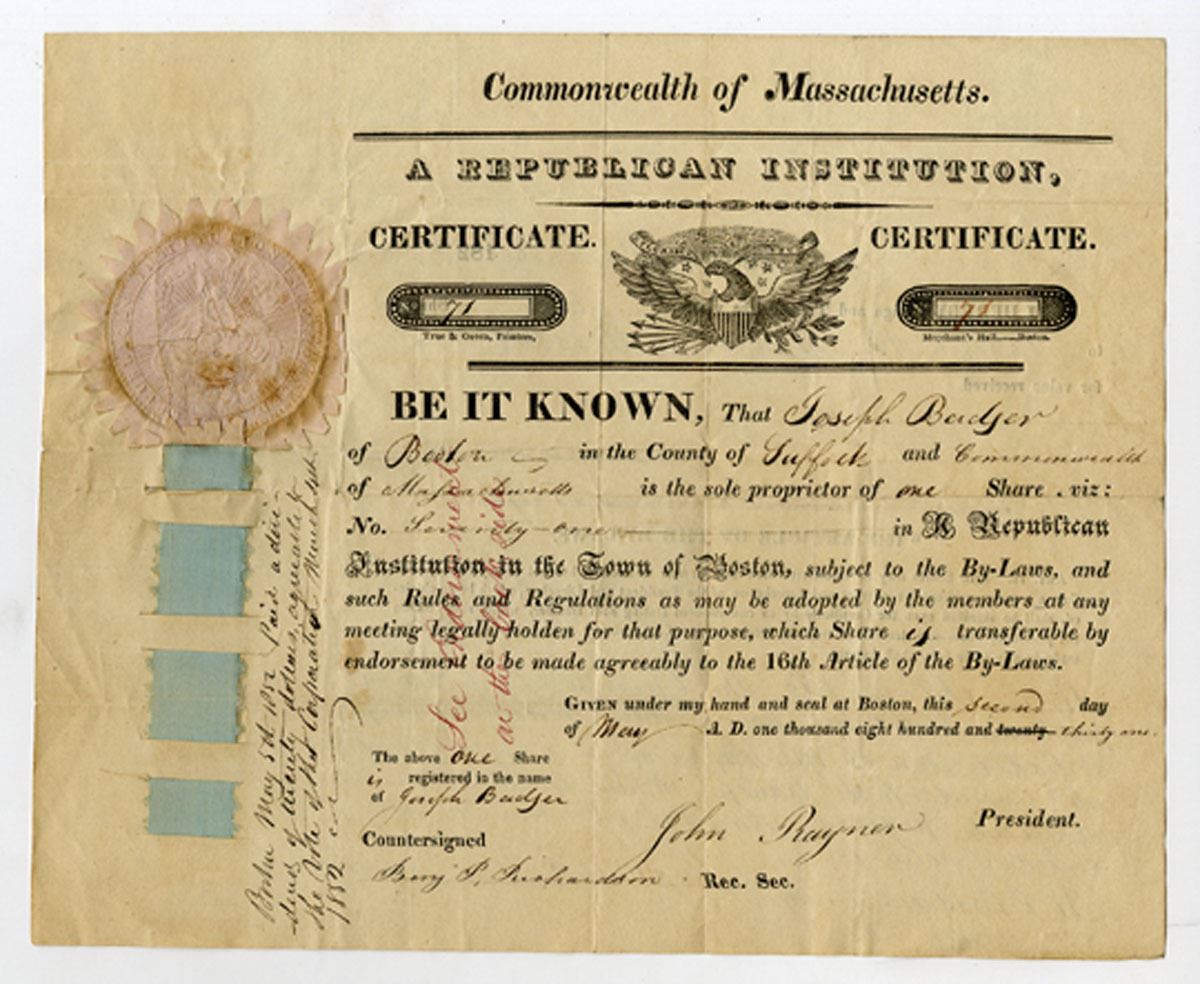 Commonwealth of Massachusetts.
A REPUBLICAN INSTITUTION,
CERTIFICATE. CERTIFICATE.
71 71
True & Green, Printers, Merchant's Hall, Boston.
BE IT KNOWN, That Joseph Badger
of Boston in the County of Suffolk and Commonwealth
of Massachusetts is the sole proprietor of one Share viz:
No. Seventy-one in A Republican
Institution in the Town of Boston, subject to the By-Laws, and
such Rules and Regulations as may be adopted by the members at any
meeting legally holden for that purpose, which Share is transferable by
endorsement to be made agreeably to the 16th Article of the By-Laws.
GIVEN under my hand and seal at Boston, this second day
of May A. D. one thousand eight hundred and twenty thirty one.
The above one Share
is registered in the name
of Joseph Badger
Countersigned
John Rayner President.
Benj P. Richardson Rec. Sec.
See
on the back side
Boston May 5th 1852 Paid a divi-
dend of twenty dollars, agreeable to
the Vote of the Corporation March
1852